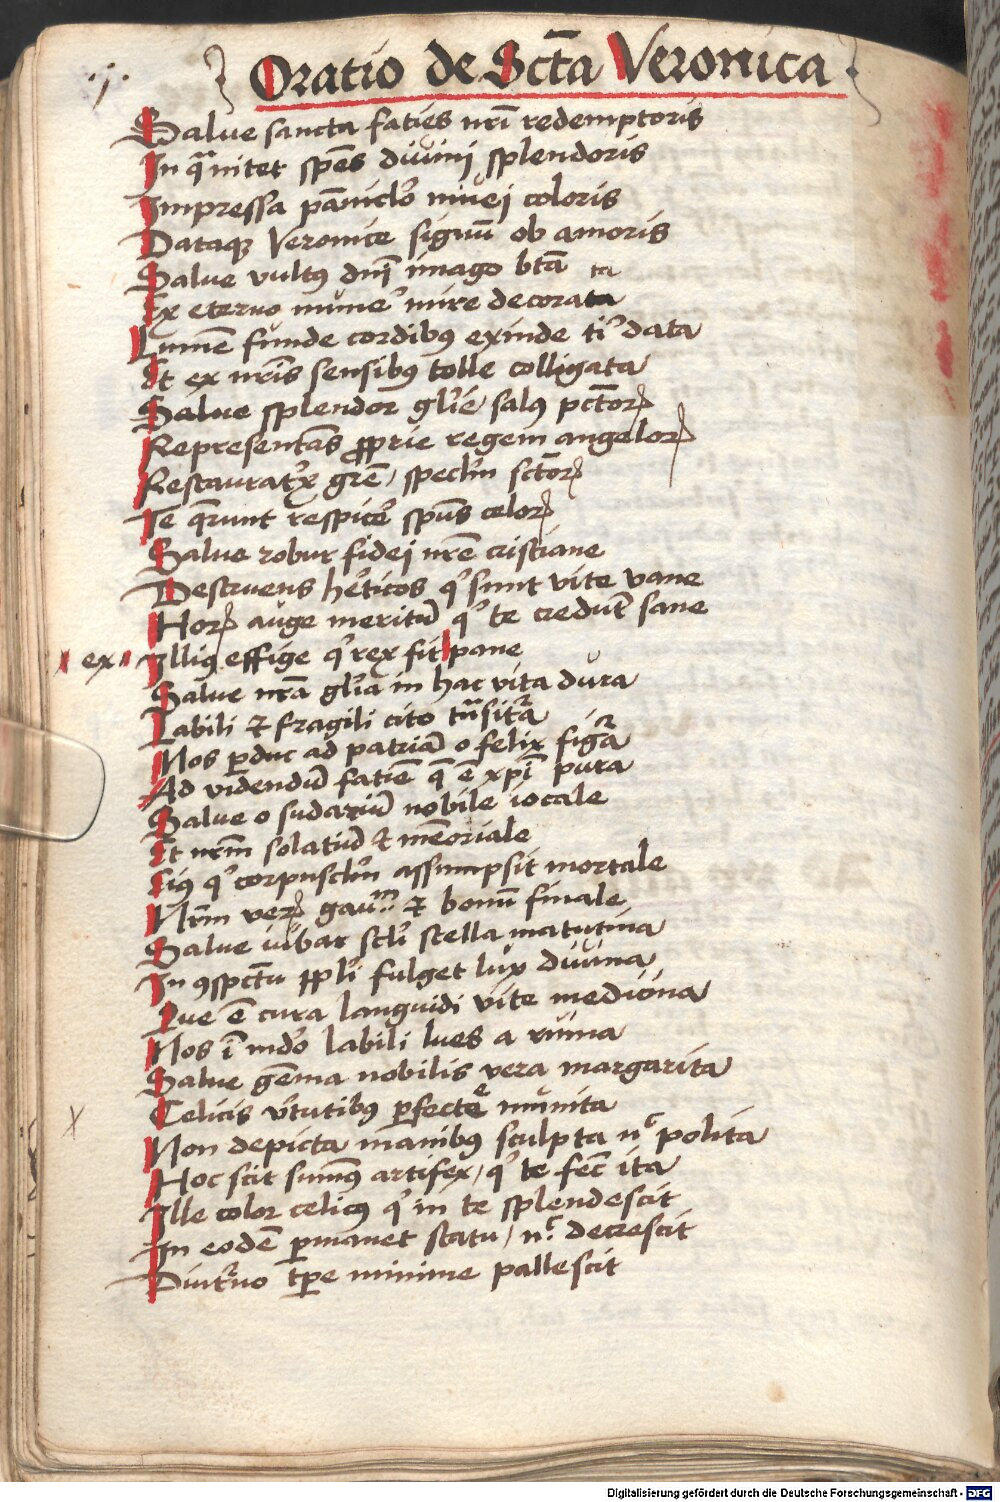 Oratio de Sctā Veronica.
Salue sancta faties nr̄i redemptoris
In qͣ nitet spēs diuinj splendoris
Impressa pāniclo niuej coloris
Dataqꝫ Veronice signū ob amoris
Salue vultꝰ dn̄i imago btā ta
Ex eterno mune mire decorata
Lumē funde cordibꝰ exinde ti data
Et ex nr̄is sensibꝰ tolle colligata
Salue splendor gl̄ie salꝰ pctoꝝ
Representās ꝓprie regem angeloꝝ
Restauratrx grē / specl̄m sctoꝝ
Te qrunt respice spūs celoꝝ
Salue robur fidej nrē cristiane
Destruens heticos qͥ sunt vite vane
Hoꝝ auge meritū qͥ te credūt sane
ex Illiꝰ effige qͥ rex fit pane
Salue nrā gl̄ia in hac vita dura
Labili et fragili cito tn̄sitͣa
Nos ꝑduc ad patriā o felix figͣa
Ad videndū fatiē q̄ ē xp̄i pura
Salue o sudariū nobile iocale
Et nrm̄ solatiū et mēoriale
Eiꝰ qͥ corpuscl̄m assumpsit mortale
Nrm̄ veꝝ gauᵐ et bonū finale
Salue iubar scl̄i stella matutina
In ꝯspctu ppl̄i fulget lux diuina
Que ē cura languidi vite medicina
Nos ī mdo labili lues a ruina
Salue gēma nobilis vera margarita
Celicis v̄tutibꝰ ꝑfectē munita
Non depicta manibꝰ sculpta nͨ polita
Hoc scit sumꝰ artifex / qͥ te fec̄ ita
Ille color celicꝰ qͥ in te splendescit
In eodē ꝑmanet statu / nͨ decrescit
Diutͥno tꝑe minime pallescit
Digitalisierung gefördert durch die Deutsche Forschungsgemeinschaft - DFG